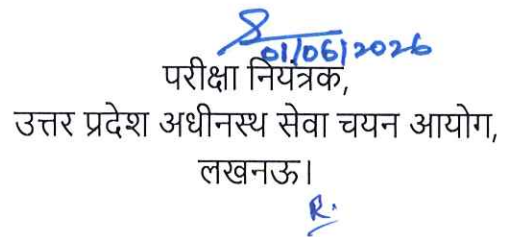 01/06/2026
परीक्षा नियंत्रक,
उत्तर प्रदेश अधीनस्थ सेवा चयन आयोग,
लखनऊ।
R.